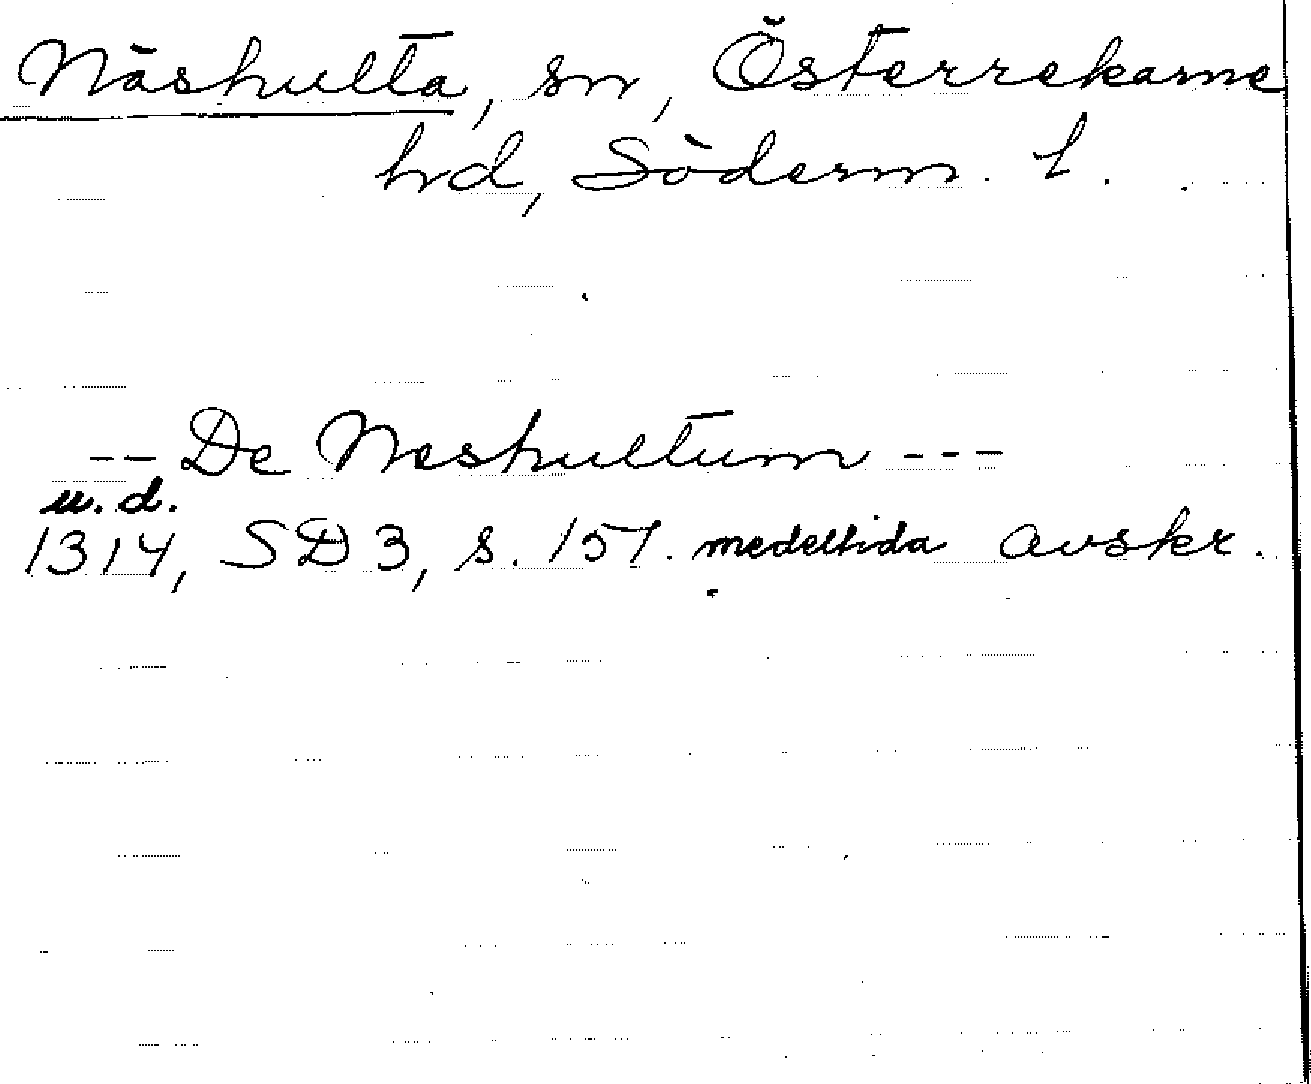 Näshulta, sn, Österrekarne
hd, Söderm. l.
-- De Neshultum ---
u. d.
1314, SD 3, s. 157. medeltida avskr.